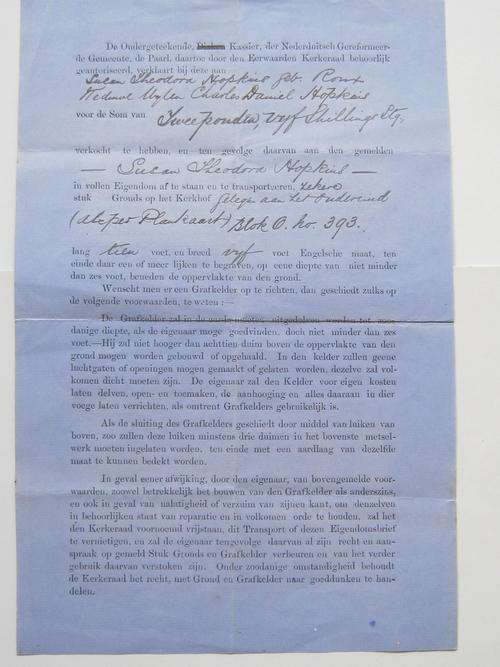 De Ondergeteekende, Diaken Kassier, der Nederduitsch Gereformeer-
de Gemeente, de Paarl, daartoe door den Eerwaarden Kerkeraad behoorlijk
geautoriseerd, verklaart bij deze aan
Susan Theodora Hopkins geb. Roux
Weduwe Wylen Charles Daniel Hopkins
voor de Som van Twee ponden, vyf Shillings Stg.
verkocht te hebben, en ten gevolge daarvan aan den gemelden
— Susan Theodora Hopkins —
in vollen Eigendom af te staan en te transporteren, zekere
stuk Gronds op het Kerkhof gelegen aan het Ondereind
(als per Plankaart) Blok O. No. 393.
lang tien voet, en breed vyf voet Engelsche maat, ten
einde daar een of meer lijken te begraven, op eene diepte van niet minder
dan zes voet, beneden de oppervlakte van den grond.
Wenscht men er een Grafkelder op te richten, dan geschiedt zulks op
de volgende voorwaarden, te weten :—
De Grafkelder zal in de aarde moeten uitgedolven worden tot zoo-
danige diepte, als de eigenaar moge goedvinden, doch niet minder dan zes
voet.—Hij zal niet hooger dan achttien duim boven de oppervlakte van den
grond mogen worden gebouwd of opgehaald. In den kelder zullen geene
luchtgaten of openingen mogen gemaakt of gelaten worden, dezelve zal vol-
komen dicht moeten zijn. De eigenaar zal den Kelder voor eigen kosten
laten delven, open- en toemaken, de aanhooging en alles daaraan in dier
voege laten verrichten, als omtrent Grafkelders gebruikelijk is.
Als de sluiting des Grafkelders geschiedt door middel van luiken van
boven, zoo zullen deze luiken minstens drie duimen in het bovenste metsel-
werk moeten ingelaten worden, ten einde met een aardlaag van dezelfde
maat te kunnen bedekt worden.
In geval eener afwijking, door den eigenaar, van bovengemelde voor-
waarden, zoowel betrekkelijk het bouwen van den Grafkelder als anderszins,
en ook in geval van nalatigheid of verzuim van zijnen kant, om denzelven
in behoorlijken staat van reparatie en in volkomen orde te houden, zal het
den Kerkeraad voornoemd vrijstaan, dit Transport of dezen Eigendomsbrief
te vernietigen, en zal de eigenaar tengevolge daarvan al zijn recht en aan-
spraak op gemeld Stuk Gronds en Grafkelder verbeuren en van het verder
gebruik daarvan verstoken zijn. Onder zoodanige omstandigheid behoudt
de Kerkeraad het recht, met Grond en Grafkelder naar goeddunken te han-
delen.